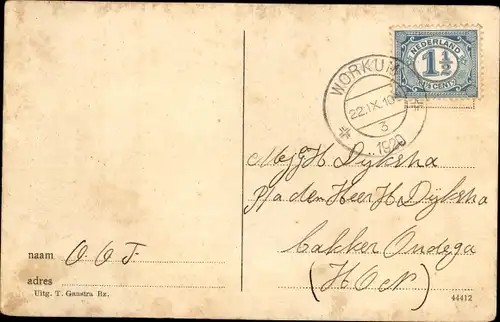 NEDERLAND
1½
1½ CENT
WORKUM
22.IX.10-
3
1920
Mej H Dijkstra
p/a den Heer H Dijkstra
bakker Oudega
(H O N)
naam O. O. F.
adres
Uitg. T. Gaastra Bz.
44412